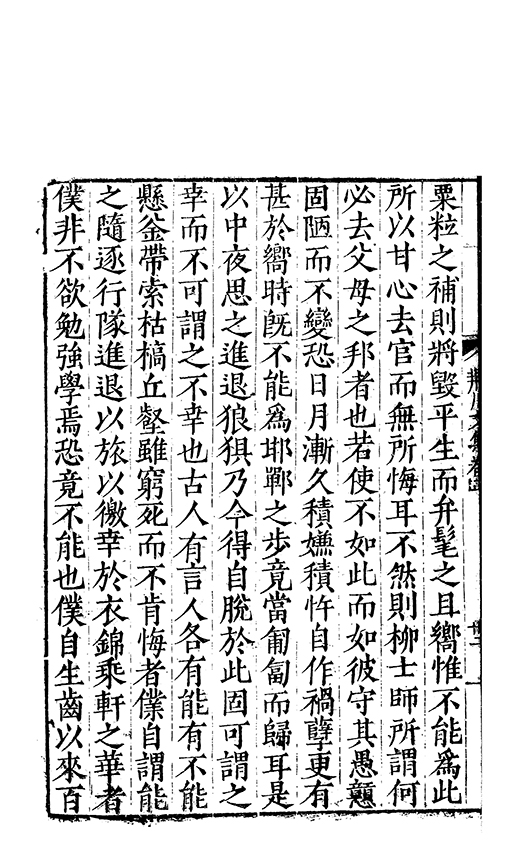 粟粒之補則將毀平生而弁髦之且嚮惟不能爲此
所以甘心去官而無所悔耳不然則柳士師所謂何
必去父母之邦者也若使不如此而如彼守其愚戇
固陋而不變恐日月漸久積嫌積忤自作禍孽更有
甚於嚮時旣不能爲邯鄲之步竟當匍匐而歸耳是
以中夜思之進退狼狽乃今得自脫於此固可謂之
幸而不可謂之不幸也古人有言人各有能有不能
懸釜帶索枯槁丘壑雖窮死而不肯悔者僕自謂能
之隨逐行隊進退以旅以徼幸於衣錦乘軒之華者
僕非不欲勉強學焉恐竟不能也僕自生齒以來百